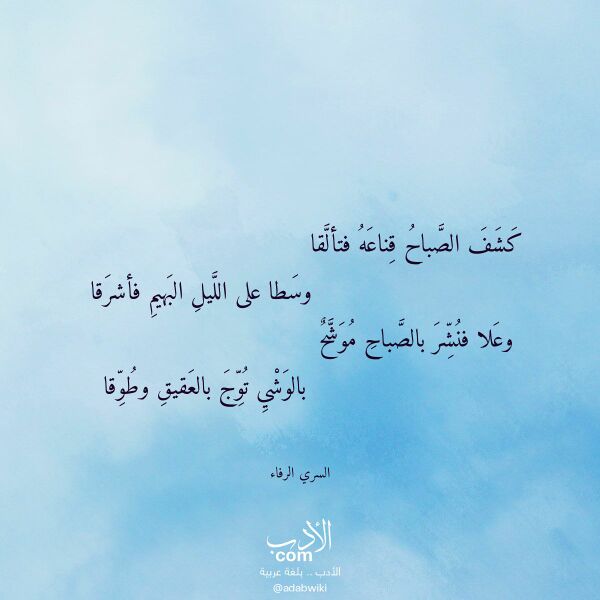 كَشَفَ الصَّباحُ قِناعَهُ فتألَّقا
وسَطا على اللَّيلِ البَهيمِ فأشرَقا
وعَلا فنُشِّرَ بالصَّباحِ مُوَشَّحٌ
بالوَشْيِ تُوِّجَ بالعَقيقِ وطُوِّقا
السري الرفاء
الأدب
com
الأدب .. بلغة عربية
@adabwiki